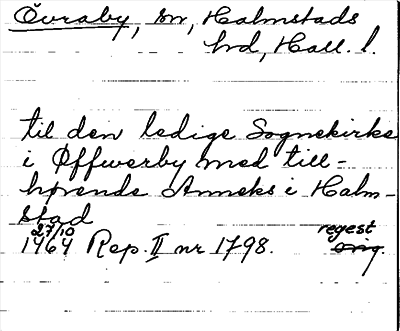 Övraby, sn, Halmstads
hd, Hall. l.
til den ledige Sognekirke
i Øffwerby med till-
hørende Anneks i Halm-
stad
27/10
1464 Rep. II nr 1798. regest
orig.